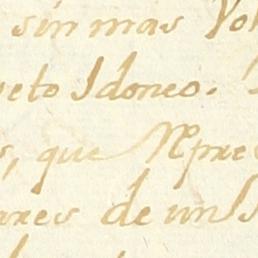 sin mas Vo
eto Idoneo.
s, que Npre
ares de un S